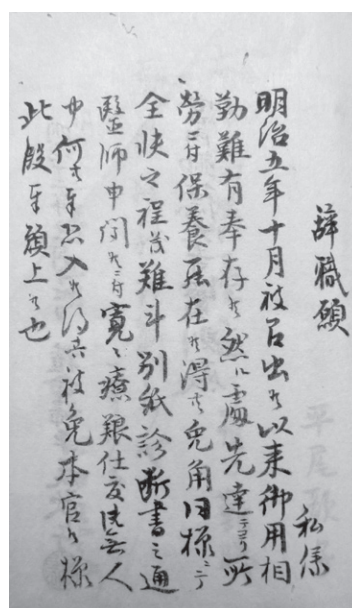 辞職願
私儀
明治五年十月被召出候以来御用相
勤難有奉存候然ル処先達テヨリ所
労ニ付保養罷在候得共兎角同様ニテ
全快之程茂難斗別紙診断書之通
医師申聞候ニ付寛々療養仕度
何
被免本官候様
此段奉願上候也